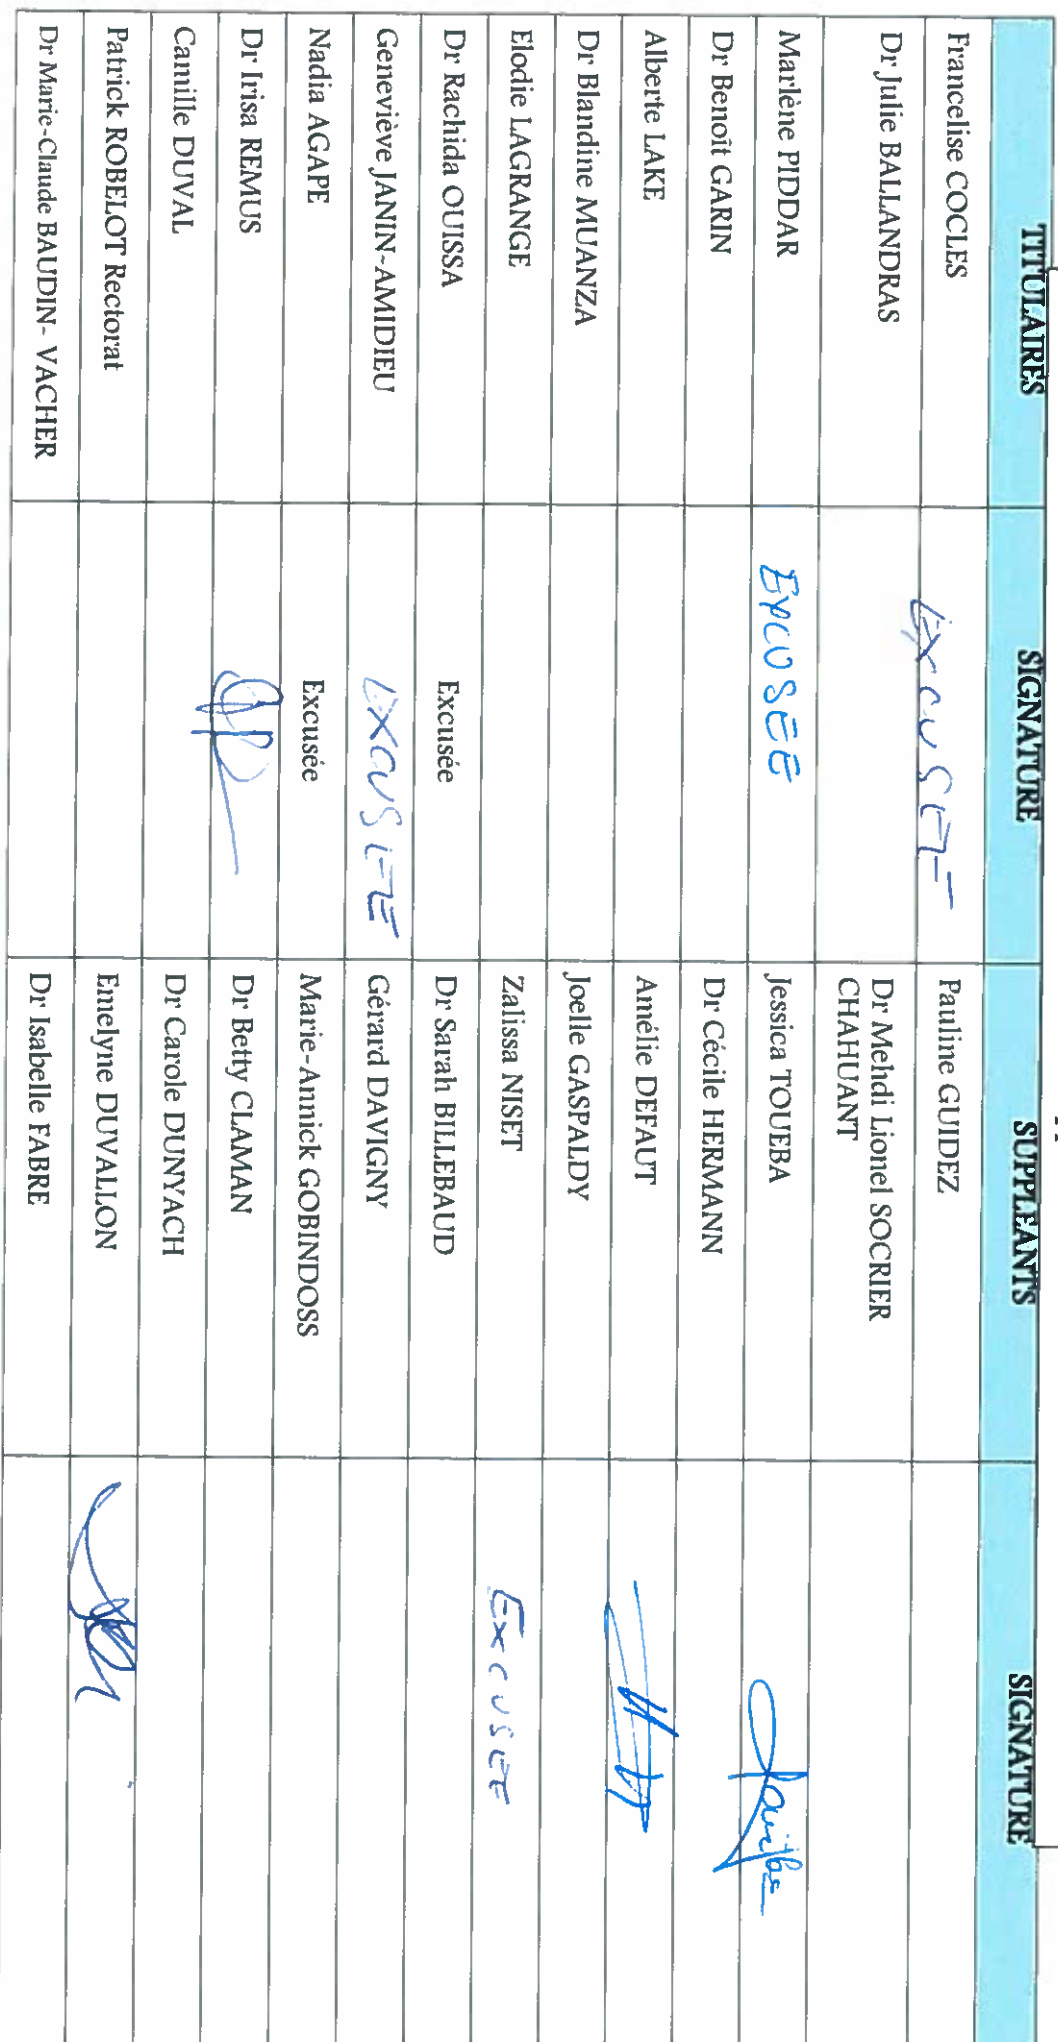 TITULAIRES SIGNATURE SUPPLEANTS SIGNATURE
Francelise COCLES EXCUSEE Pauline GUIDEZ
Dr Julie BALLANDRAS Dr Mehdi Lionel SOCRIER
CHAHUANT
Marlène PIDDAR EXCUSEE Jessica TOUEBA
Dr Benoît GARIN Dr Cécile HERMANN
Alberte LAKE Amélie DEFAUT
Dr Blandine MUANZA Joelle GASPALDY
Elodie LAGRANGE Zalissa NISET EXCUSEE
Dr Rachida OUISSA Excusée Dr Sarah BILLEBAUD
Geneviève JANIN-AMIDIEU EXCUSEE Gérard DAVIGNY
Nadia AGAPE Excusée Marie-Annick GOBINDOSS
Dr Irisa REMUS Dr Betty CLAMAN
Camille DUVAL Dr Carole DUNYACH
Patrick ROBELOT Rectorat Emelyne DUVALLON
Dr Marie-Claude BAUDIN- VACHER Dr Isabelle FABRE